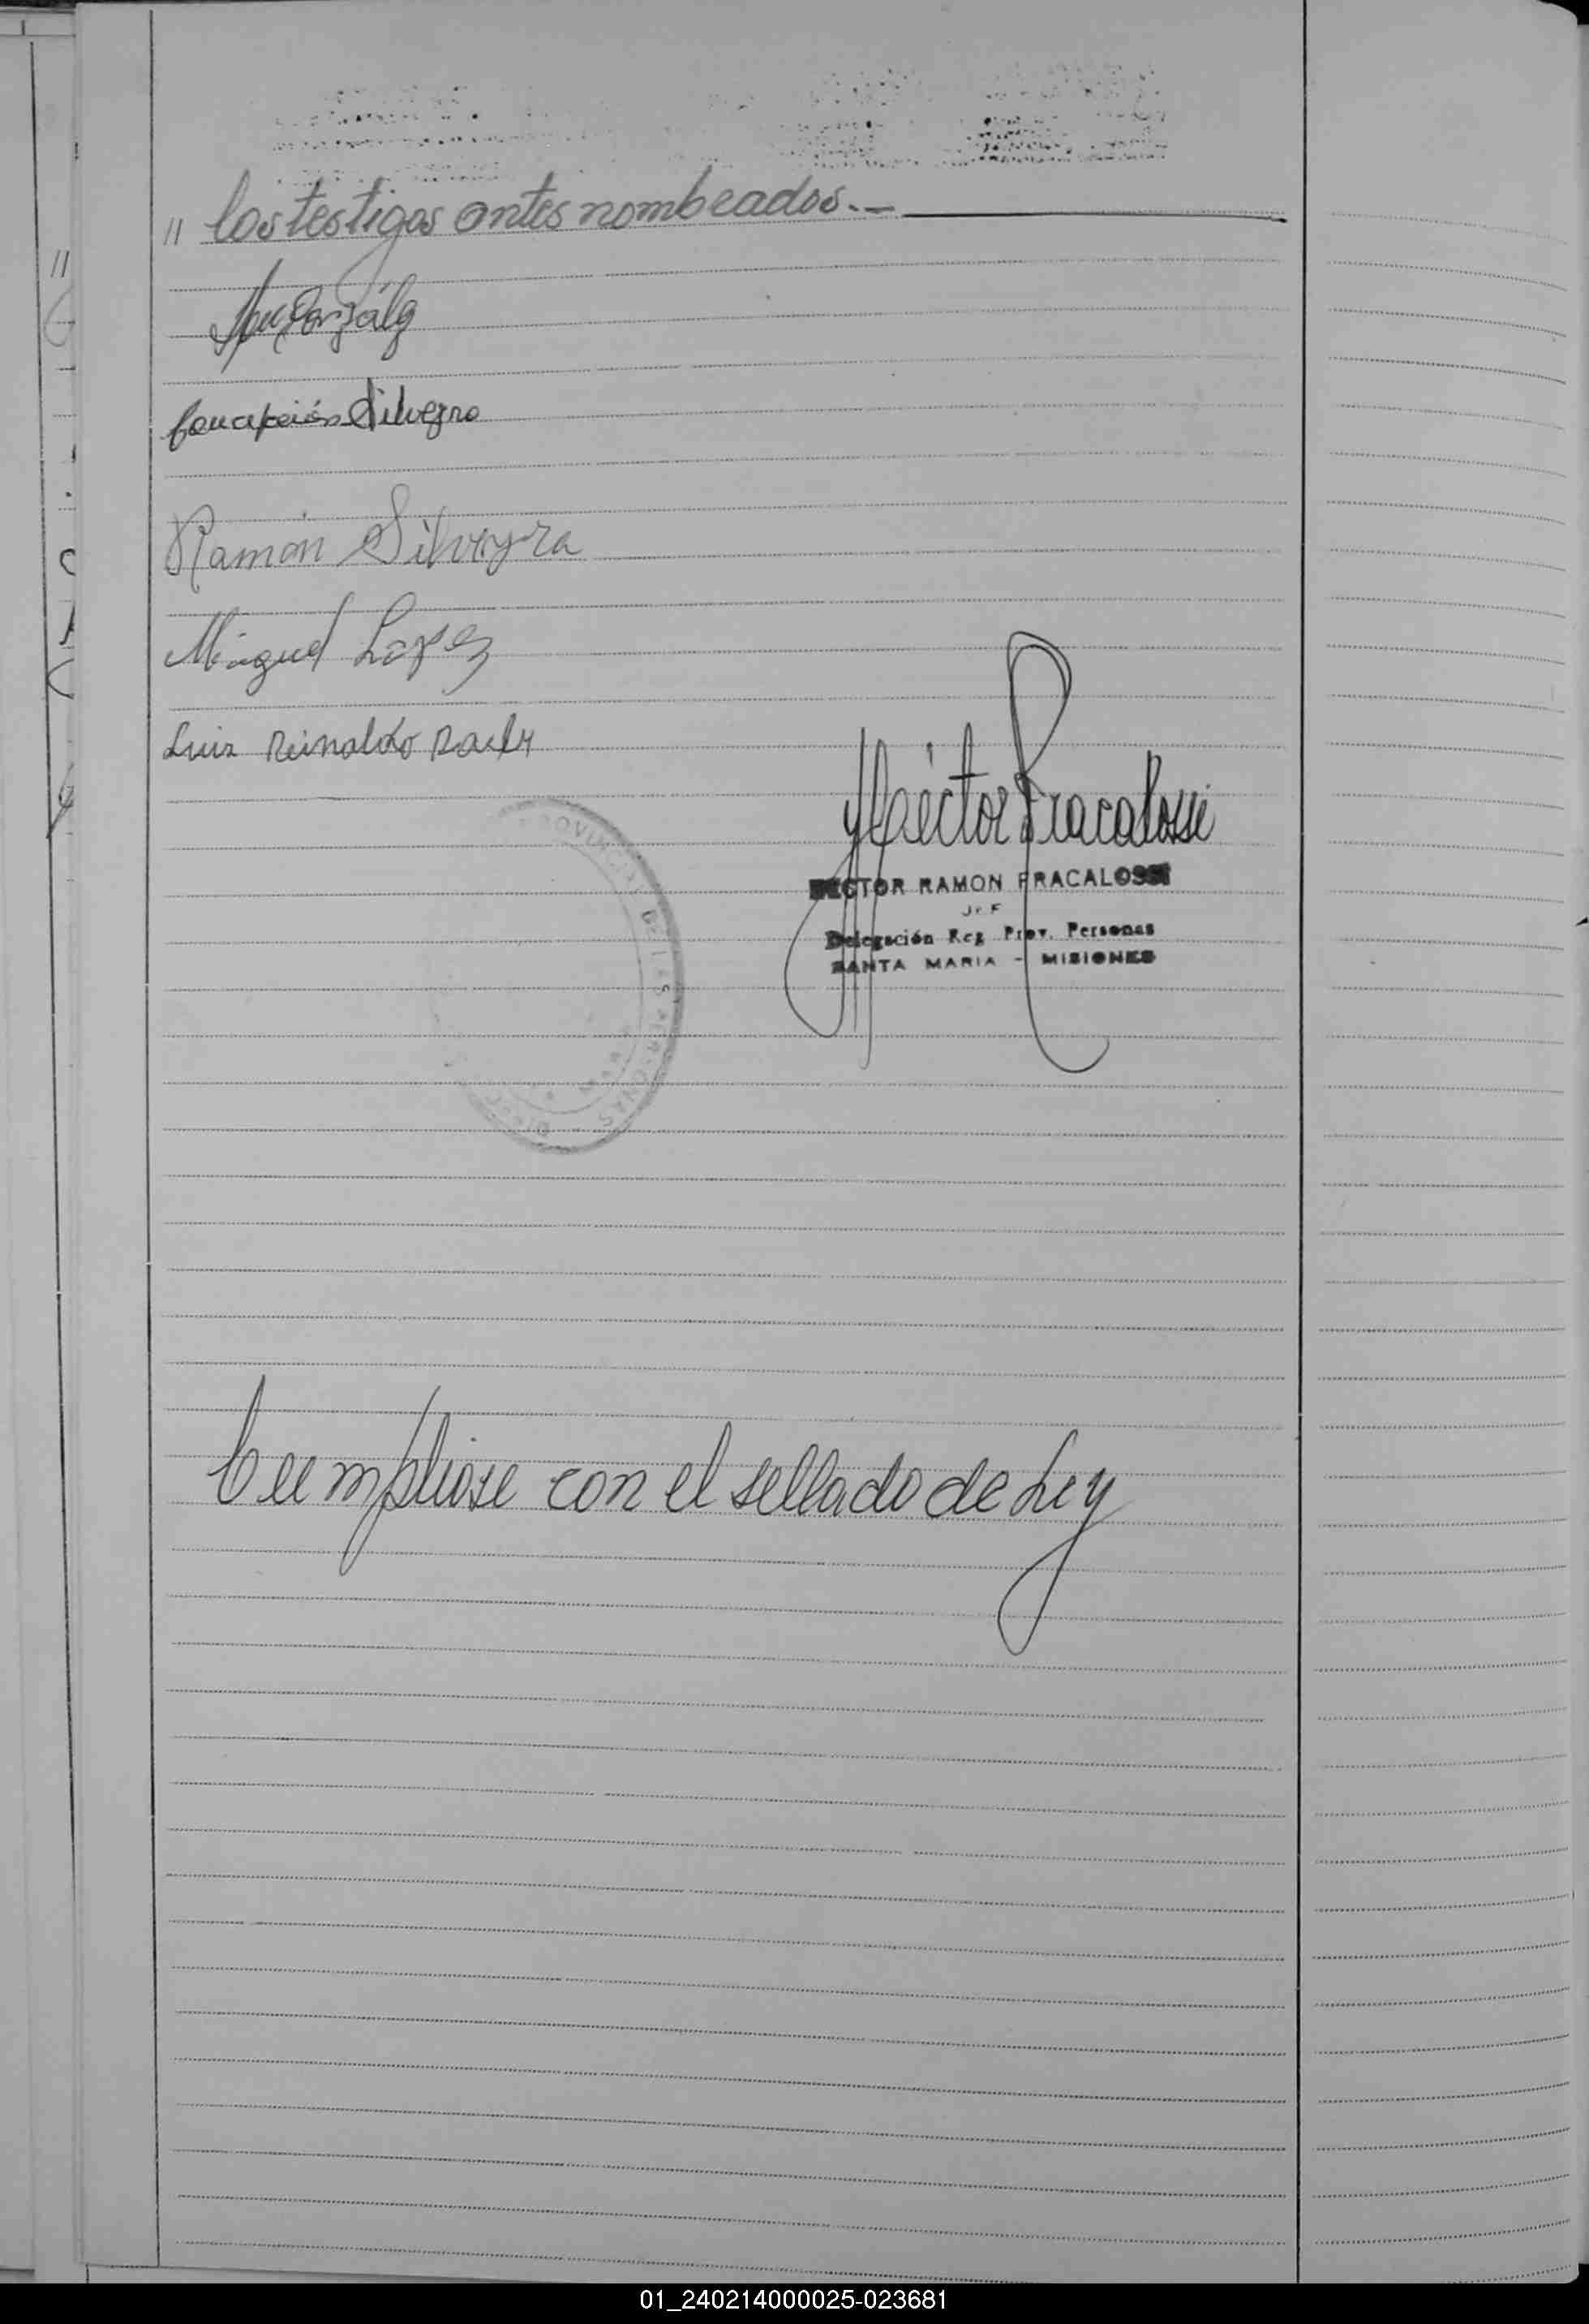 // los testigos antes nombrados.-
Concepción Silveyra
Ramón Silveyra
Minguel Lopez
Luiz Reinaldo
Héctor Fracalossi
HECTOR RAMON FRACALOSSI
JEFE
Delegación Reg Prov. Personas
SANTA MARIA - MISIONES
PROVINCIAL DE LAS PERSONAS
Cumpliose con el sellado de Ley
01_240214000025-023681